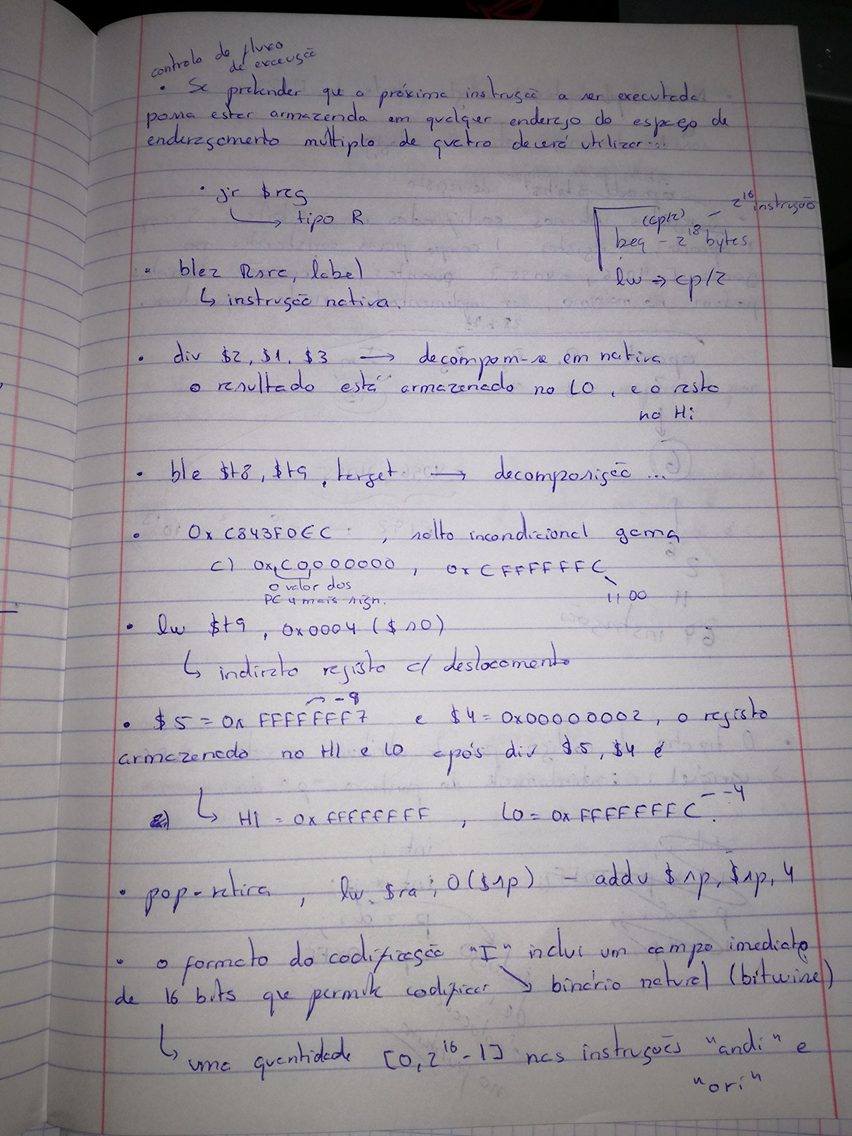 controlo do fluxo
de execução
• Se pretender que a próxima instrução a ser executada
possa estar armazenda em qualquer endereço do espaço de
endereçamento múltiplo de quatro deverá utilizar...
• jr $reg
↳ tipo R
(cp/2) - 2^16 instrução
beq - 2^18 bytes
lw → cp/2
• blez Rsrc, label
↳ instrução nativa.
• div $2, $1, $3 → decompom-se em nativa
o resultado está armazenado no LO, e o resto
no Hi
• ble $t8, $t9, target → decomposição ...
• 0x C843F0EC , salto incondicional gama
c) 0x C0,000000 , 0x CFFFFFFC
o valor dos
PC 4 mais sign.
1100
• lw $t9, 0x0004 ($s0)
↳ indireto registo c/ deslocamento
-8
• $5 = 0x FFFFFFF7 e $4 = 0x00000002, o registo
armazenado no HI e LO após div $5, $4 é
↳ HI = 0x FFFFFFFF , LO = 0x FFFFFFFC - -4
• pop-retira , lw $ra, 0($sp) - addu $sp, $sp, 4
• o formato do codificação "I" inclui um campo imediato
de 16 bits que permite codificar ↘ binário natural (bitwise)
↳ uma quantidade [0, 2^16 - 1] nas instruções "andi" e
"ori"